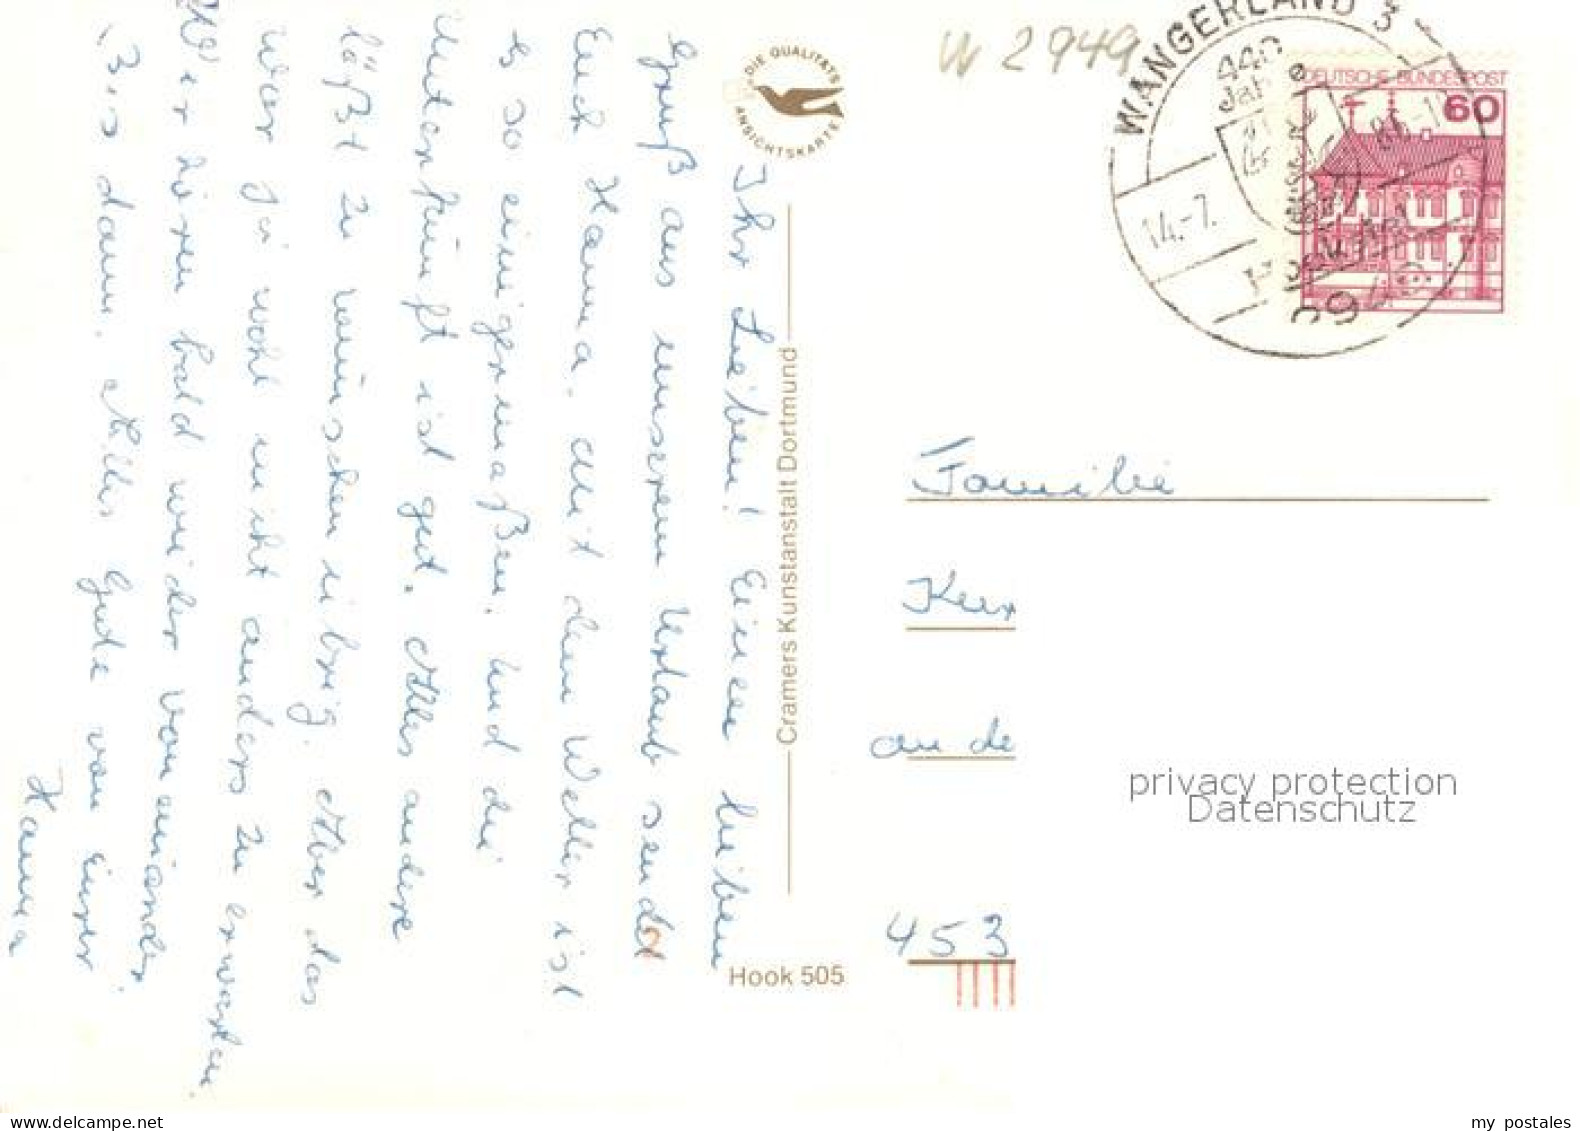 Ihr Lieben! Einen lieben
Gruß aus unserem Urlaub sendet
Euch Hanna. Mit dem Wetter ist
es so einigermaßen. Und die
Unterkünft ist gut. Alles andere
läßt zu wünschen übrig. Aber das
war ja wohl nicht anders zu erwarten.
Wir hören bald wieder voneinander.
Bis dann. Alles Gute von Eurer
Hanna
DIE QUALITÄTS
ANSICHTSKARTE
Cramers Kunstanstalt Dortmund
Hook 505
W 2949
WANGERLAND 3
440
Jahre
14.-7.
2949
DEUTSCHE BUNDESPOST
60
Familie
an de
453
privacy protection
Datenschutz
my postales